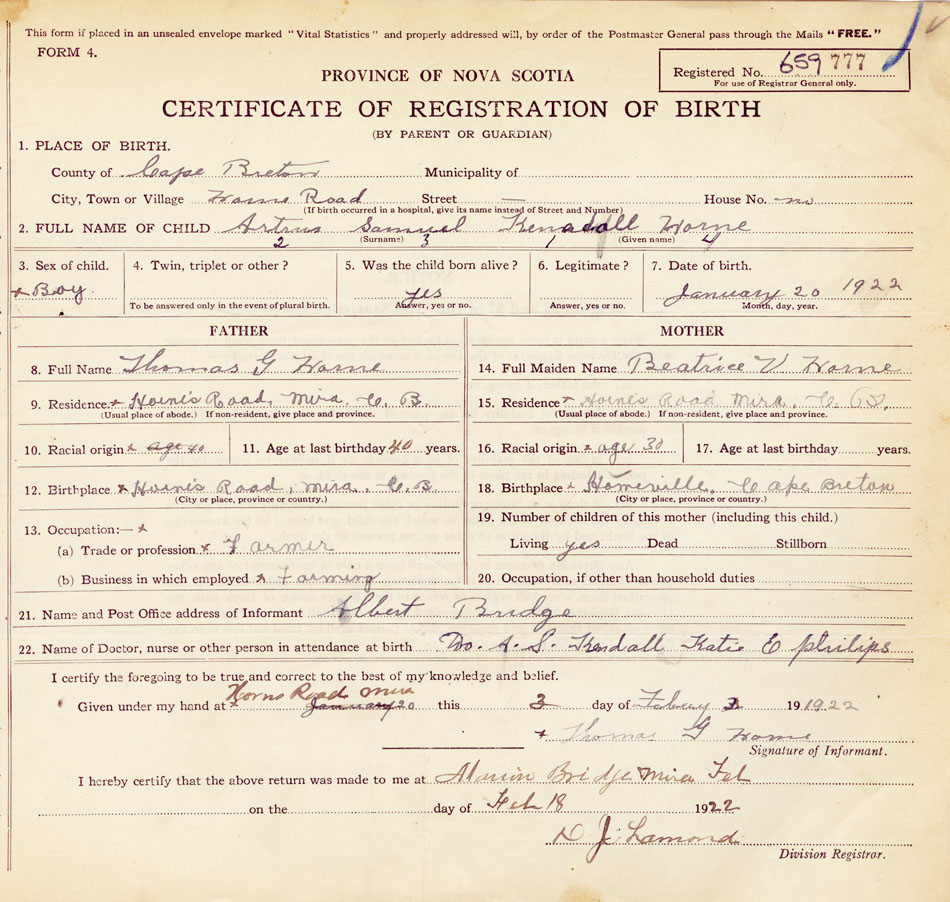 This form if placed in an unsealed envelope marked "Vital Statistics" and properly addressed will, by order of the Postmaster General pass through the Mails "FREE."
FORM 4.
Registered No. 659 777
For use of Registrar General only.
PROVINCE OF NOVA SCOTIA
CERTIFICATE OF REGISTRATION OF BIRTH
(BY PARENT OR GUARDIAN)
1. PLACE OF BIRTH.
County of Cape Breton Municipality of
City, Town or Village Horns Road Street — House No. no
(If birth occurred in a hospital, give its name instead of Street and Number)
2. FULL NAME OF CHILD Samuel Kendall Horne
2 (Surname) 3 1 (Given name) 4
3. Sex of child. 4. Twin, triplet or other? 5. Was the child born alive? 6. Legitimate? 7. Date of birth.
x Boy yes January 20 1922
To be answered only in the event of plural birth. Answer, yes or no. Answer, yes or no. Month, day, year.
FATHER MOTHER
8. Full Name Thomas G Horne 14. Full Maiden Name Beatrice V Horne
9. Residence x Hornes Road, Mira, C. B. 15. Residence x Hornes Road Mira, C. B.
(Usual place of abode.) If non-resident, give place and province. (Usual place of abode.) If non-resident, give place and province.
10. Racial origin x age 40 11. Age at last birthday 40 years. 16. Racial origin x age 30 17. Age at last birthday years.
12. Birthplace x Hornes Road, Mira, C. B. 18. Birthplace x Homeville, Cape Breton
(City or place, province or country.) (City or place, province or country.)
13. Occupation:— x 19. Number of children of this mother (including this child.)
(a) Trade or profession x Farmer Living yes Dead Stillborn
(b) Business in which employed x Farming 20. Occupation, if other than household duties
21. Name and Post Office address of Informant Albert Bridge
22. Name of Doctor, nurse or other person in attendance at birth Dr. A. S. Kendall Katie E philips
I certify the foregoing to be true and correct to the best of my knowledge and belief.
Horns Road Mira
Given under my hand at x January 20 this 3 day of Febuary 3 19 1922
x Thomas G Horne
Signature of Informant.
I hereby certify that the above return was made to me at Marion Bridge Mira Feb
on the day of Feb 18 1922
D J Lamond
Division Registrar.